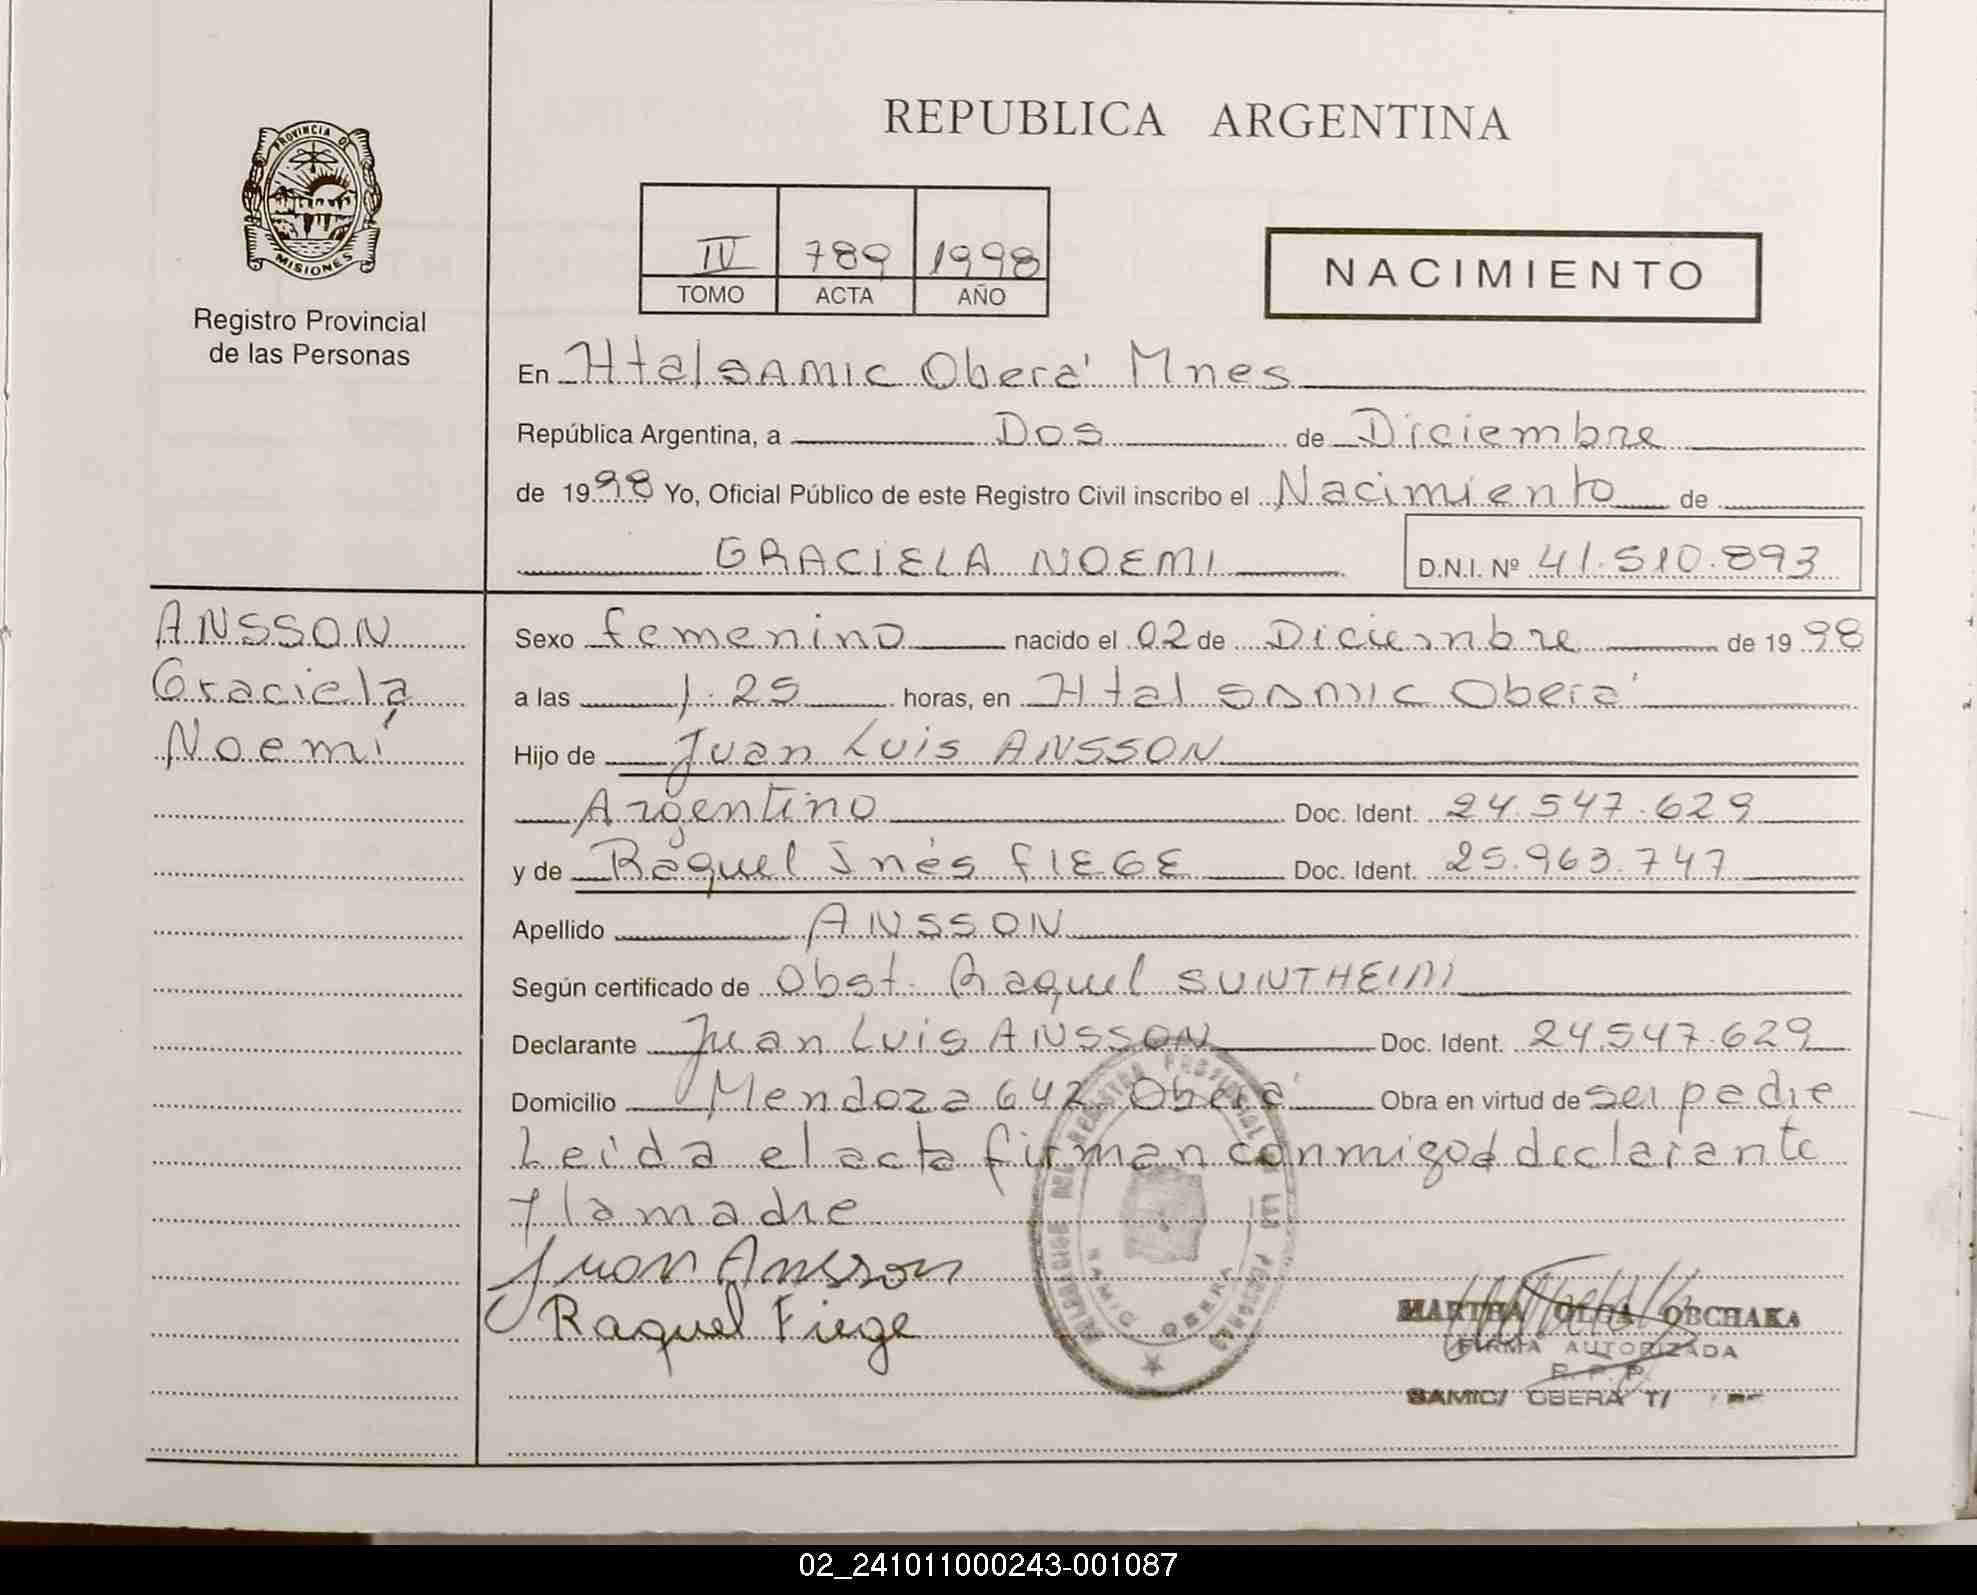 REPUBLICA ARGENTINA
PROVINCIA DE
MISIONES
Registro Provincial
de las Personas
IV 789 1998
TOMO ACTA AÑO
NACIMIENTO
En Htal SAMIC Oberá Mnes
República Argentina, a Dos de Diciembre
de 1998 Yo, Oficial Público de este Registro Civil inscribo el Nacimiento de
GRACIELA NOEMI D.N.I. Nº 41.510.893
ANSSON
Graciela
Noemí
Sexo femenino nacido el 02 de Diciembre de 1998
a las 1.25 horas, en Htal SAMIC Oberá
Hijo de Juan Luis ANSSON
Argentino Doc. Ident. 24.547.629
y de Raquel Inés FIEGE Doc. Ident. 25.963.747
Apellido ANSSON
Según certificado de Obst. Raquel SUNTHEIM
Declarante Juan Luis ANSSON Doc. Ident. 24.547.629
Domicilio Mendoza 642 Oberá Obra en virtud de ser padre
Leída el acta firman conmigo el declarante
y la madre
Juan Ansson
Raquel Fiege
REGISTRO PROVINCIAL DE LAS PERSONAS
SAMIC OBERA
MARTHA OLGA OBCHAKA
FIRMA AUTORIZADA
R. P. P.
SAMIC/ OBERA T/
02_241011000243-001087